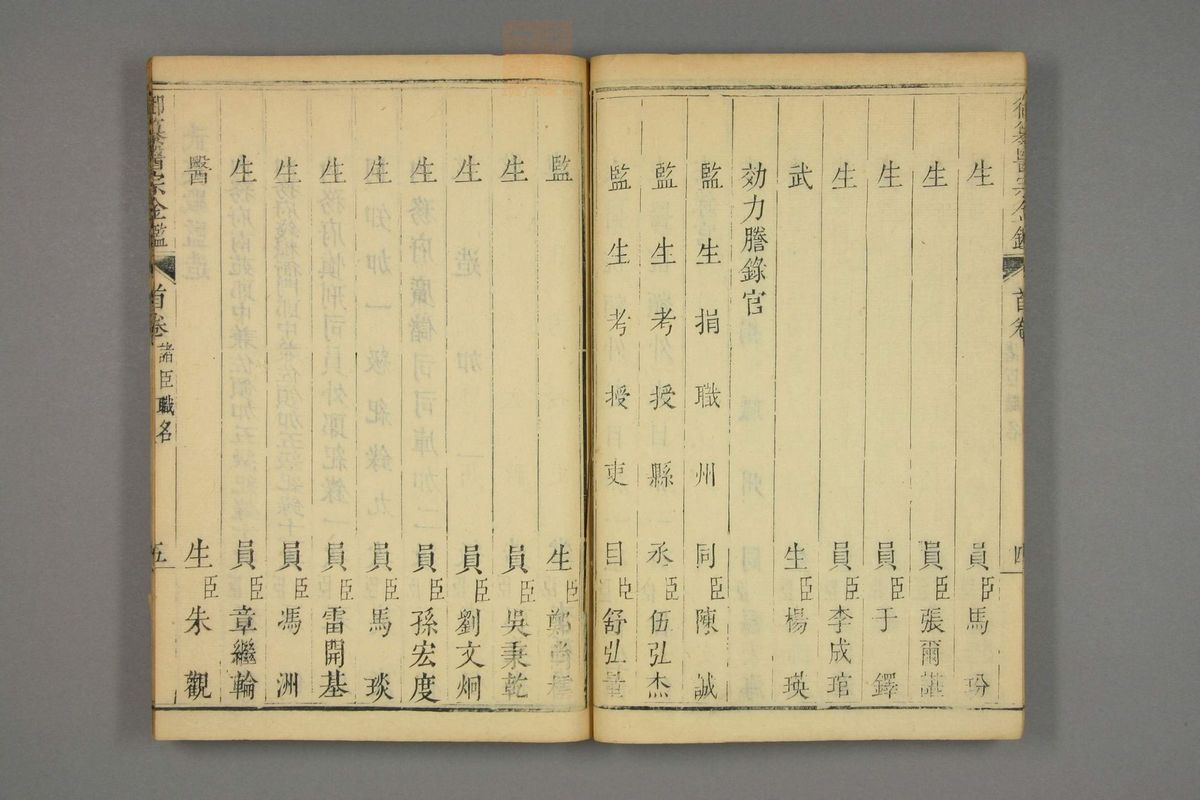 首卷
四
生員臣馬玢
生員臣張爾謨
生員臣于鐸
生員臣李成琯
武生臣楊瑛
効力謄錄官
監生捐職州同臣陳誠
監生考授縣丞臣伍弘杰
監生考授吏目臣舒弘量
監生臣鄭
生員臣吳秉乾
生員臣劉文炯
生員臣孫宏度
生員臣馬琰
生員臣雷開基
生員臣馮洲
生員臣章繼輪
醫生臣朱觀
御纂醫宗金鑑 首卷 諸臣職名 五